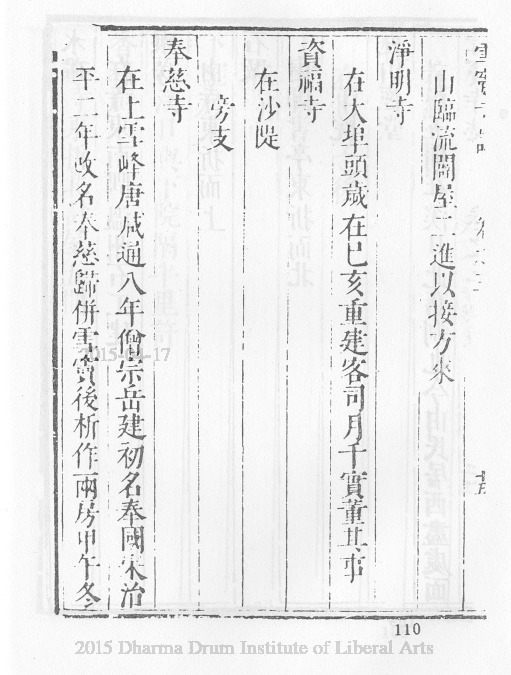 山臨流闢屋一進以接方來
淨明寺
在大埠頭歲在已亥重建客司月千實董其事
資福寺
在沙隄
旁支
奉慈寺
在上雪峰唐咸通八年僧宗岳建初名奉國宋治
平二年改名奉慈歸併雪竇後析作兩房甲午冬
2015-04-17
110
2015 Dharma Drum Institute of Liberal Arts